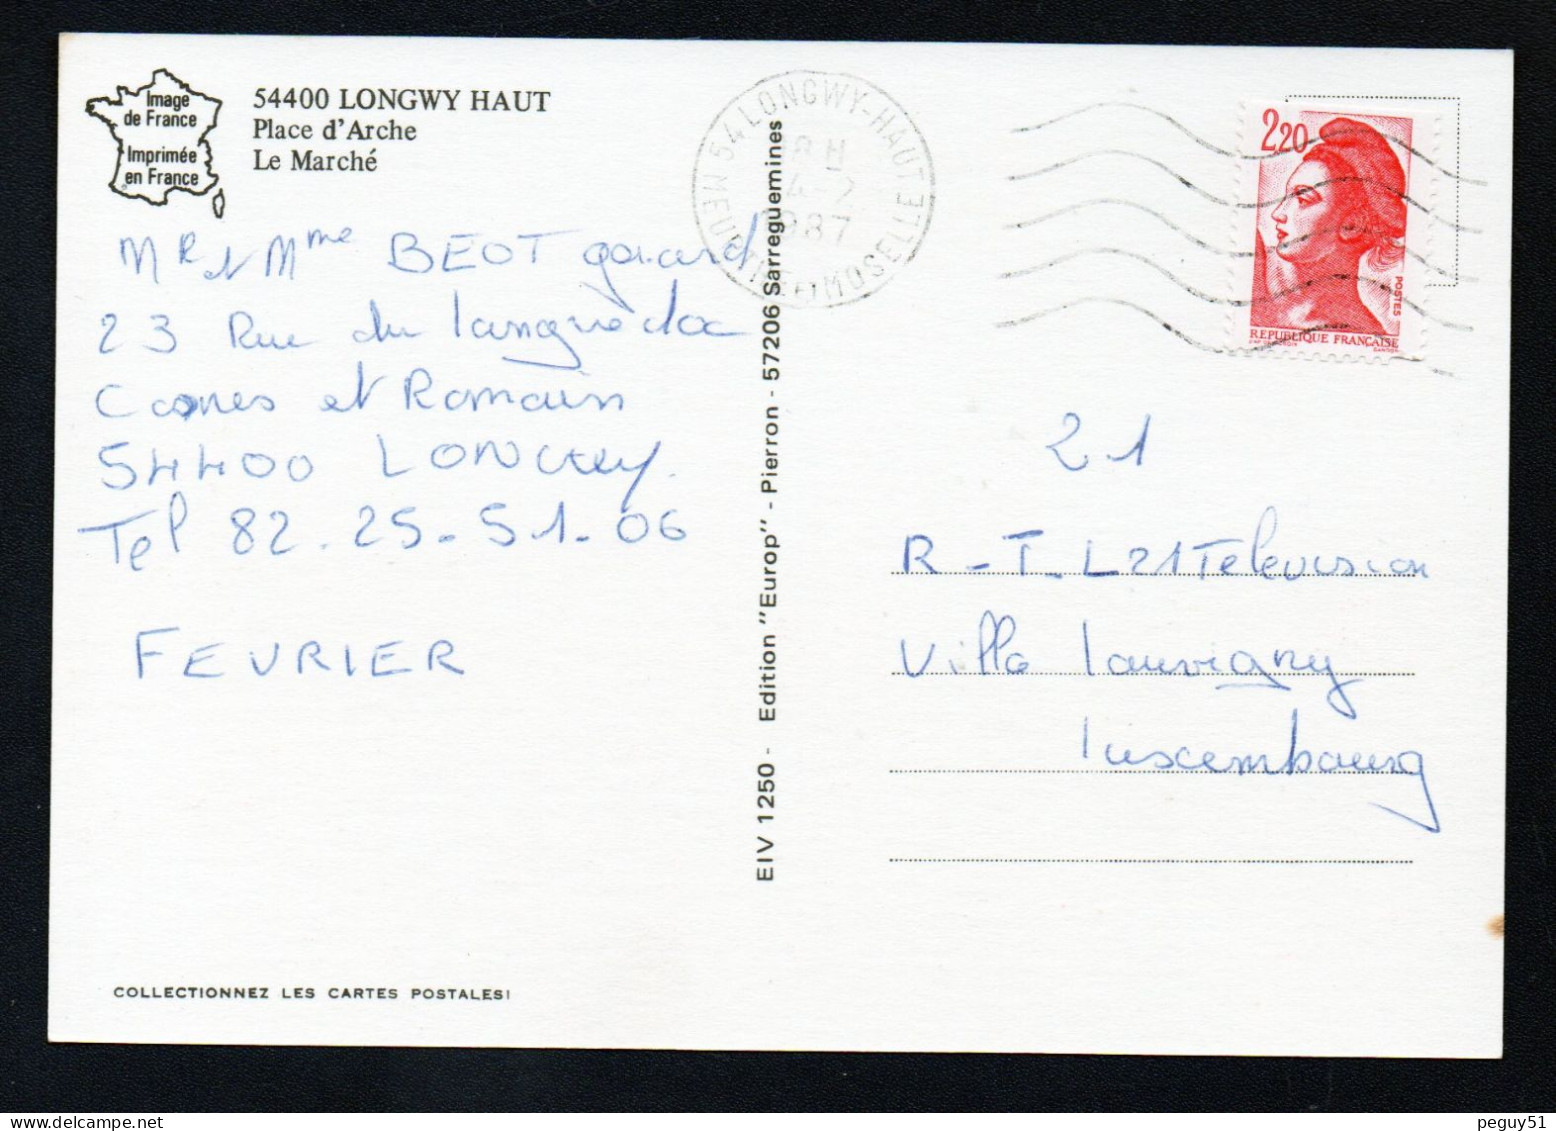 Image
de France
Imprimée
en France
54400 LONGWY HAUT
Place d'Arche
Le Marché
Mr et Mme BEOT gerard
23 Rue du languedoc
Cosnes et Romain
54400 LONGWY.
Tel 82.25-51-06
FEVRIER
COLLECTIONNEZ LES CARTES POSTALES!
EIV 1250 - Edition "Europ" - Pierron - 57206 Sarreguemines
54 LONGWY-HAUT
18 H
4-2
1987
MEURTHE ET MOSELLE
2,20
POSTES
REPUBLIQUE FRANÇAISE
21
R-T-L 21 Television
Villa louvigny
luxembourg
peguy51